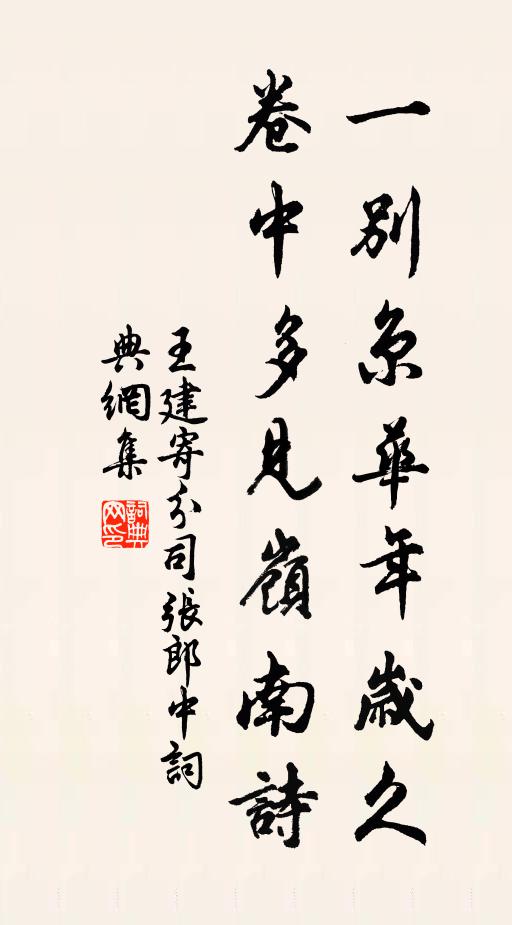 一別京華年歲久
卷中多見嶺南詩
王建寄分司張郎中詞
典網集
詞典網印